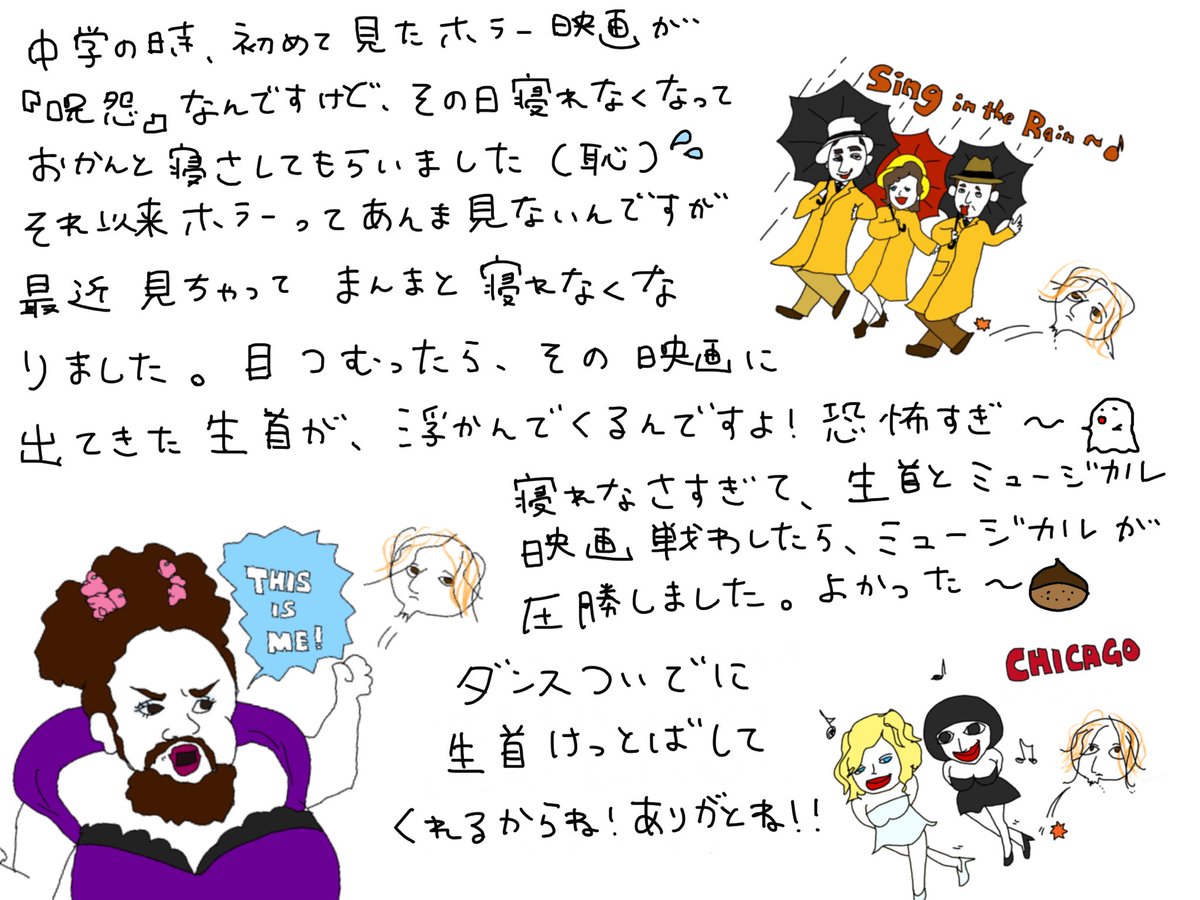 中学の時、初めて見たホラー映画が
『呪怨』なんですけど、その日寝れなくなって
おかんと寝さしてもらいました(恥)
それ以来ホラーってあんま見ないんですが
最近見ちゃって まんまと寝れなくな
りました。目つむったら、その映画に
出てきた生首が、浮かんでくるんですよ!恐怖すぎ〜
寝れなさすぎて、生首とミュージカル
映画戦わしたら、ミュージカルが
圧勝しました。よかった〜
ダンスついでに
生首けっとばして
くれるからね!ありがとね!!
Sing in the Rain~♪
THIS
IS
ME!
CHICAGO